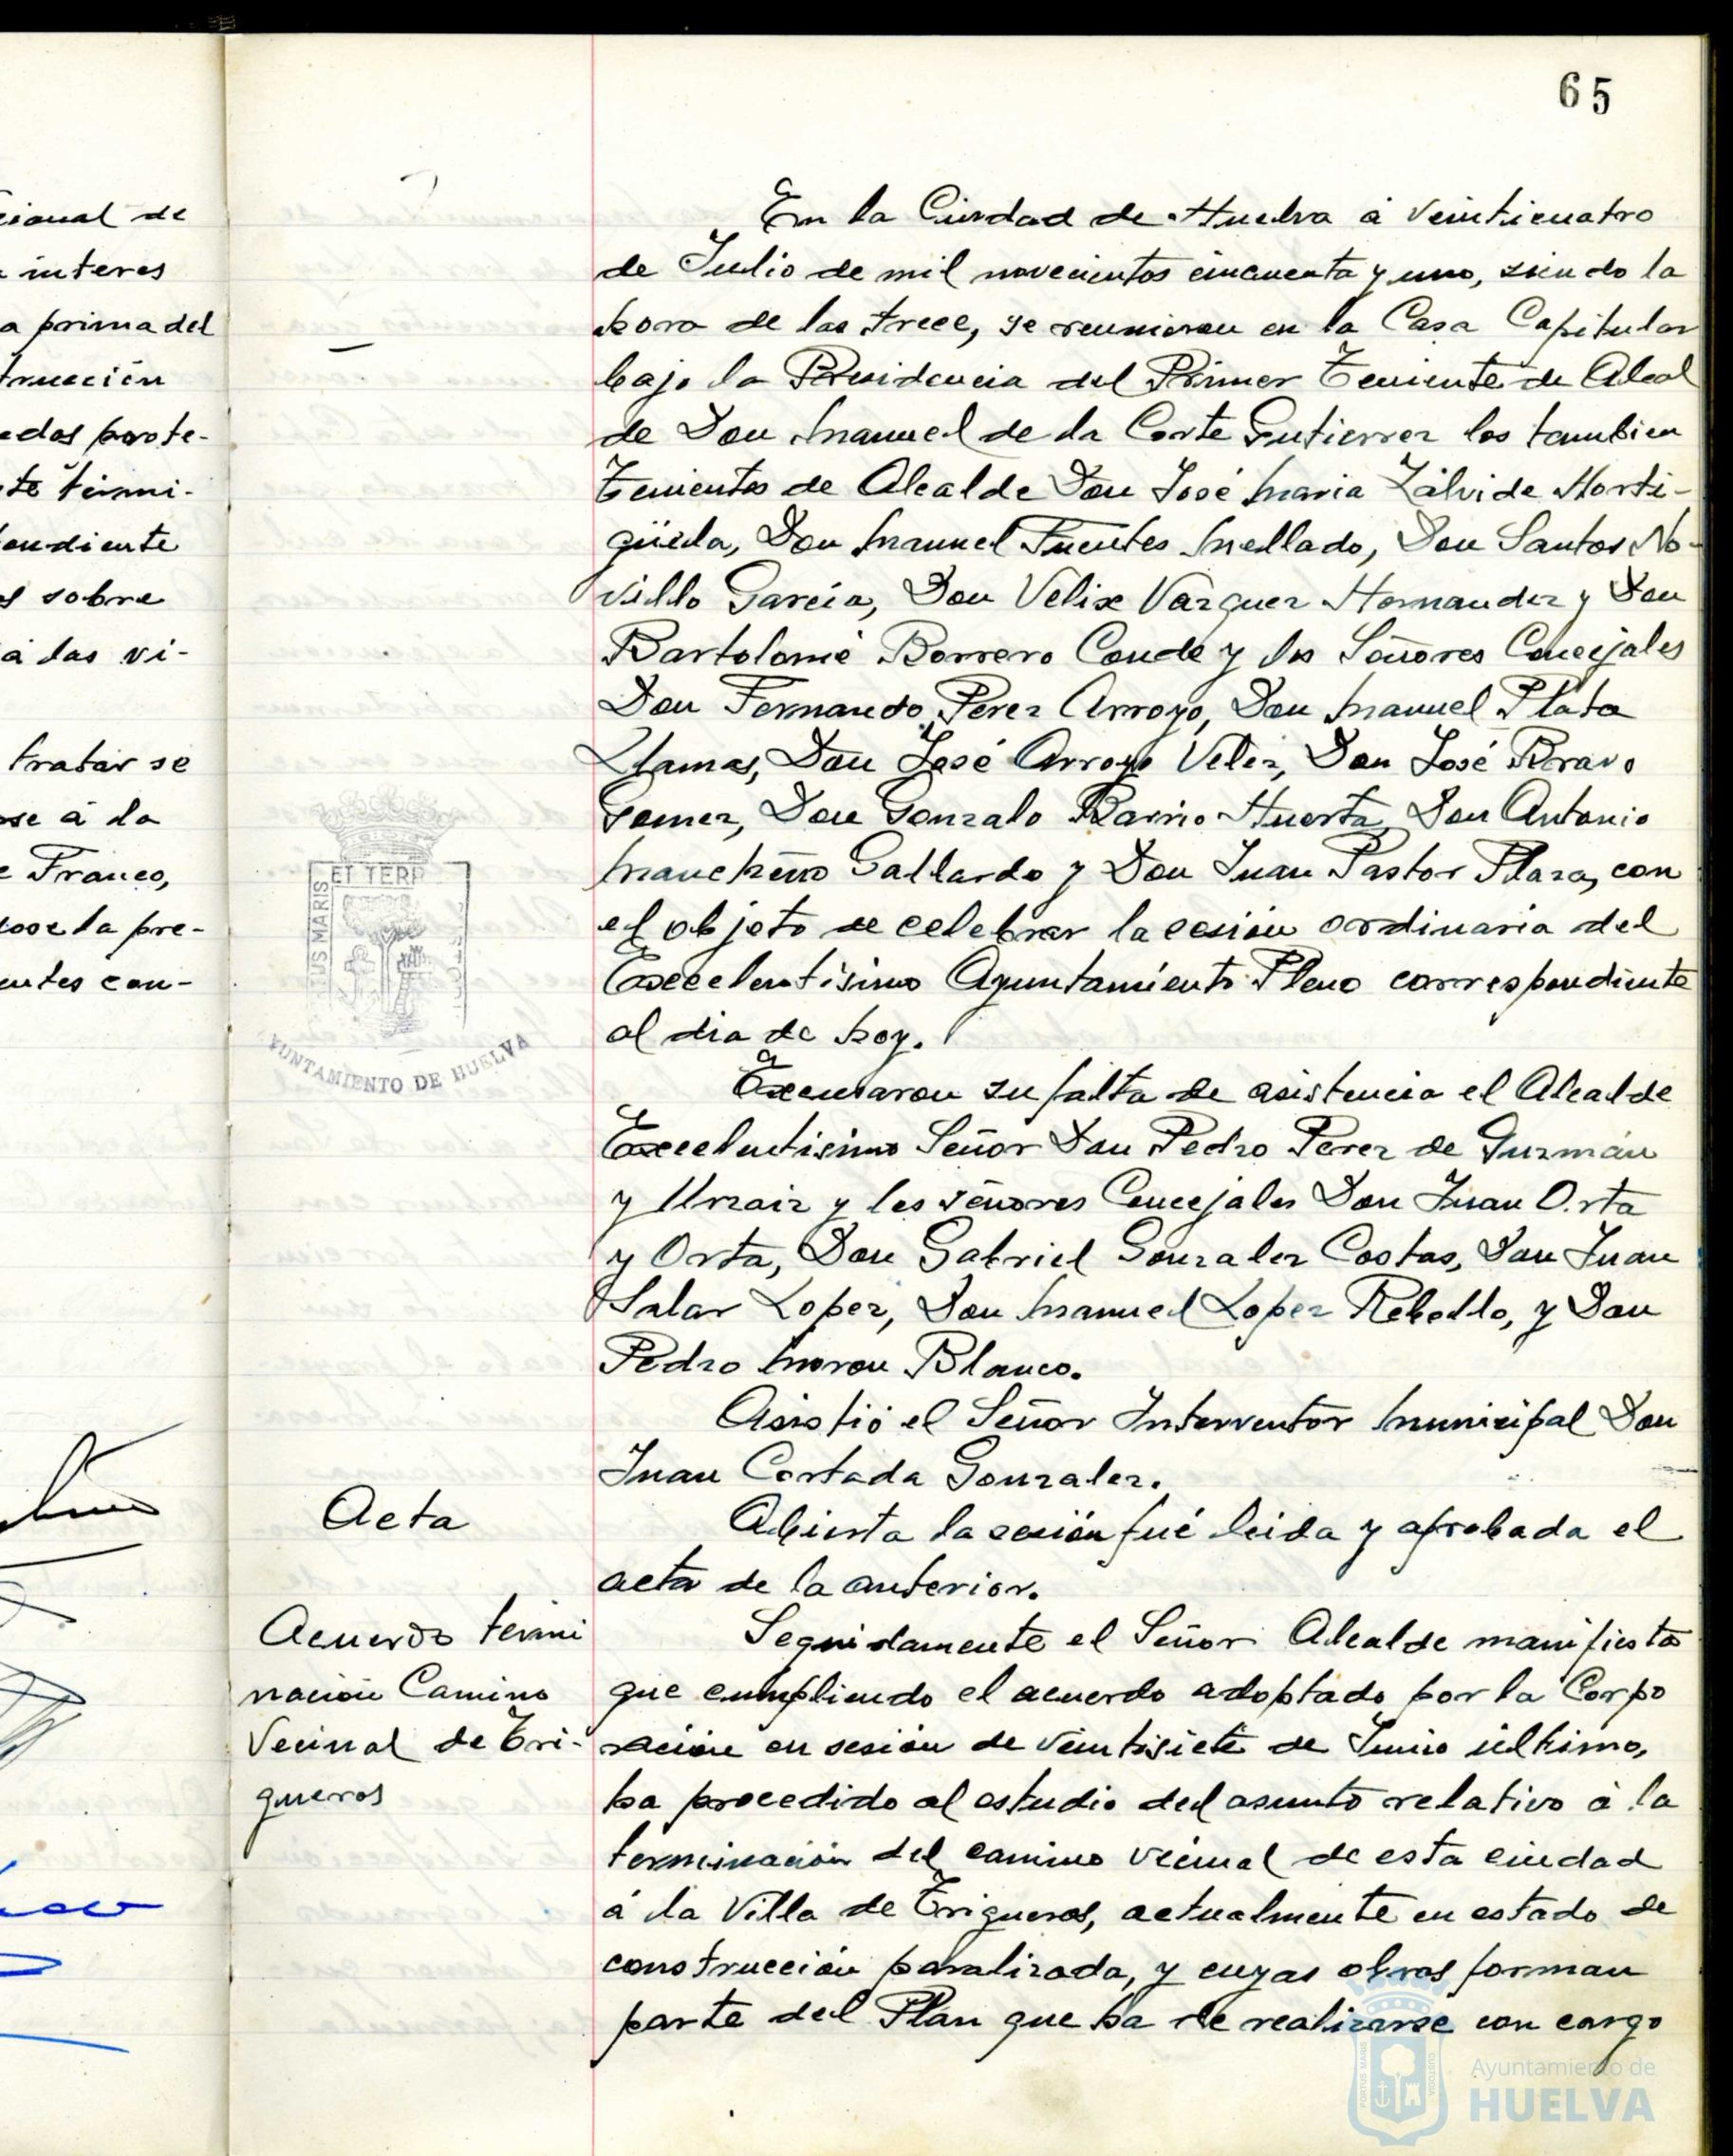 65
cional de
interes
a prima del
trucción
edas prote-
te términi-
endiente
s sobre
á las vi-
tratar se
se á la
e Franco,
dose la pre-
entes con-
En la Ciudad de Huelva á veinticuatro
de Julio de mil novecientos cincuenta y uno, siendo la
hora de las trece, se reunieron en la Casa Capitular
bajo la Presidencia del Primer Teniente de Alcal
de Don Manuel de la Corte Gutierrez los tambien
Tenientes de Alcalde Don José Maria Zálvide Horti-
güela, Don Manuel Fuentes Mellado, Don Santos No-
villo García, Don Velix Vazquez Hernandez y Don
Bartolomé Borrero Conde y los Señores Concejales
Don Fernando Perez Arroyo, Don Manuel Plata
Llamas, Don José Arroyo Velez, Don José Bravo
Gomez, Don Gonzalo Barrio Huerta, Don Antonio
Mancheño Gallardo y Don Juan Pastor Plaza, con
el objeto de celebrar la sesión ordinaria del
Excelentísimo Ayuntamiento Pleno correspondiente
al dia de hoy.
ET TERR
US MARIS
YUNTAMIENTO DE HUELVA
Excusaron su falta de asistencia el Alcalde
Excelentisimo Señor Don Pedro Perez de Guzmán
y Urzaiz y los señores Concejales Don Juan Orta
y Orta, Don Gabriel Gonzalez Costas, Don Juan
Salar Lopez, Don Manuel Lopez Rebollo, y Don
Pedro Moron Blanco.
Asistió el Señor Interventor Municipal Don
Juan Cortada Gonzalez.
Acta
Abierta la sesión fué leida y aprobada el
acta de la anterior.
Acuerdo termi
nación Camino
Vecinal de Tri-
gueros
Seguidamente el Señor Alcalde manifiesta
que cumpliendo el acuerdo adoptado por la Corpo
ración en sesión de veintisiete de Junio último,
ha procedido al estudio del asunto relativo á la
terminación del camino vecinal de esta ciudad
á la Villa de Trigueros, actualmente en estado de
construcción paralizada, y cuyas obras forman
parte del Plan que ha de realizarse con cargo
PORTUS MARIS
CUSTODIA
Ayuntamiento de
HUELVA